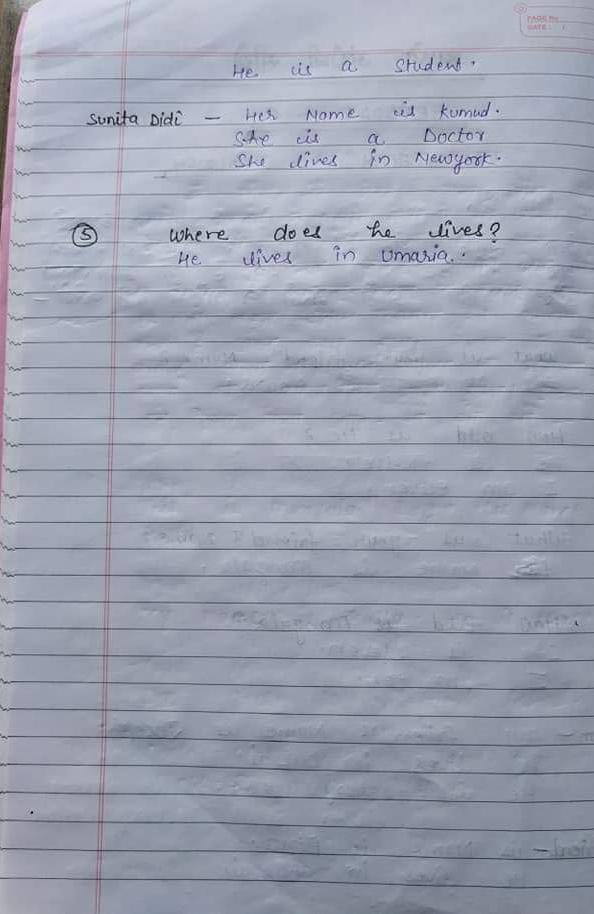 PAGE No.
DATE: / /
He is a Student.
Sunita Didi — Her Name is Kumud.
She is a Doctor
She lives in Newyork.
⑤ Where does he lives?
He lives in Umaria.